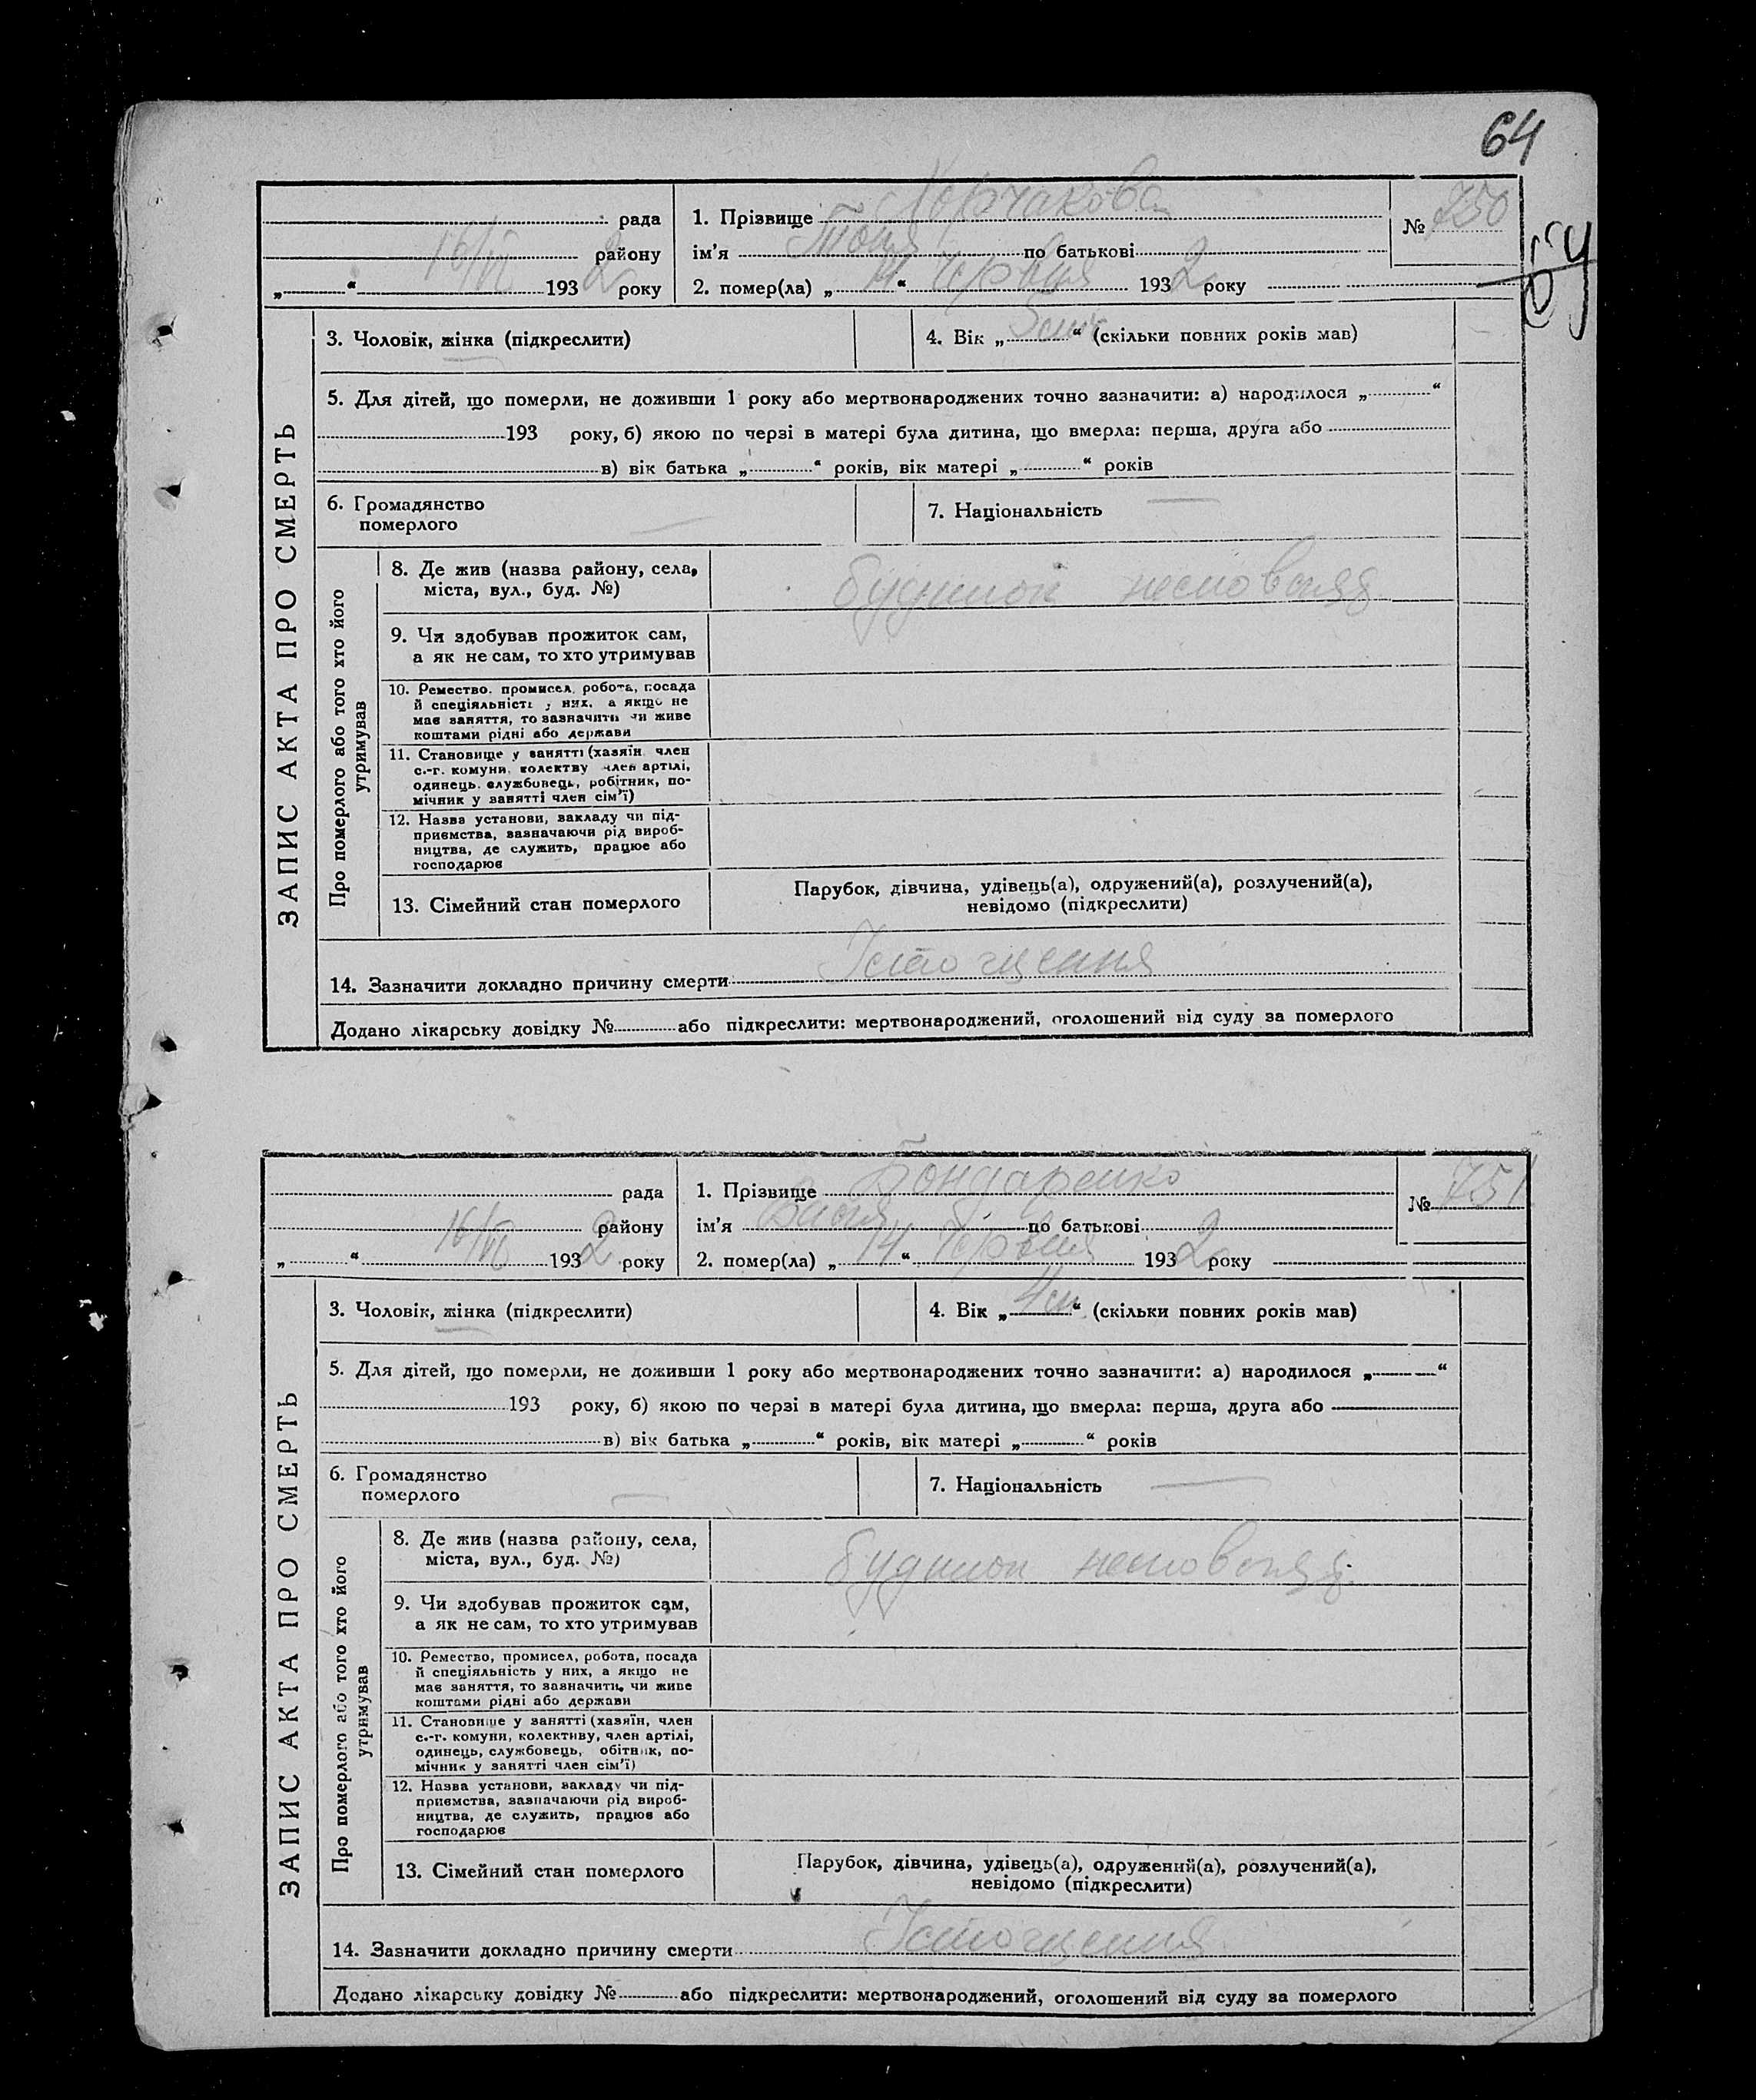 64
рада
району
16/VI 1932 року
1. Прізвище
ім'я Тоня по батькові
2. помер(ла) „14“ Червня 1932 року
№ 750
ЗАПИС АКТА ПРО СМЕРТЬ
3. Чоловік, жінка (підкреслити)
4. Вік „ “ (скільки повних років мав)
5. Для дітей, що померли, не доживши 1 року або мертвонароджених точно зазначити: а) народилося „ “
193 року, б) якою по черзі в матері була дитина, що вмерла: перша, друга або
в) вік батька „ “ років, вік матері „ “ років
6. Громадянство
померлого
7. Національність
Про померлого або того хто його
утримував
8. Де жив (назва району, села,
міста, вул., буд. №)
будинок немовляд
9. Чи здобував прожиток сам,
а як не сам, то хто утримував
10. Ремество, промисел, робота, посада
й спеціяльність у них, а якщо не
має заняття, то зазначити чи живе
коштами рідні або держави
11. Становище у занятті (хазяїн, член
с.-г. комуни, колективу член артілі,
одинець, службовець, робітник, по-
мічник у занятті член сім'ї)
12. Назва установи, закладу чи під-
приємства, зазначаючи рід вироб-
ництва, де служить, працює або
господарює
13. Сімейний стан померлого
Парубок, дівчина, удівець(а), одружений(а), розлучений(а),
невідомо (підкреслити)
14. Зазначити докладно причину смерти Істощення
Додано лікарську довідку № або підкреслити: мертвонароджений, оголошений від суду за померлого
рада
району
16/VI 1932 року
1. Прізвище Бондаренко
ім'я Вася по батькові
2. помер(ла) „14“ Червня 1932 року
№ 751
ЗАПИС АКТА ПРО СМЕРТЬ
3. Чоловік, жінка (підкреслити)
4. Вік „4 м“ (скільки повних років мав)
5. Для дітей, що померли, не доживши 1 року або мертвонароджених точно зазначити: а) народилося „ “
193 року, б) якою по черзі в матері була дитина, що вмерла: перша, друга або
в) вік батька „ “ років, вік матері „ “ років
6. Громадянство
померлого
7. Національність
Про померлого або того хто його
утримував
8. Де жив (назва району, села,
міста, вул., буд. №)
будинок немовляд
9. Чи здобував прожиток сам,
а як не сам, то хто утримував
10. Ремество, промисел, робота, посада
й спеціяльність у них, а якщо не
має заняття, то зазначити, чи живе
коштами рідні або держави
11. Становище у занятті (хазяїн, член
с.-г. комуни, колективу, член артілі,
одинець, службовець, робітник, по-
мічник у занятті член сім'ї)
12. Назва установи, закладу чи під-
приємства, зазначаючи рід вироб-
ництва, де служить, працює або
господарює
13. Сімейний стан померлого
Парубок, дівчина, удівець(а), одружений(а), розлучений(а),
невідомо (підкреслити)
14. Зазначити докладно причину смерти Істощення
Додано лікарську довідку № або підкреслити: мертвонароджений, оголошений від суду за померлого